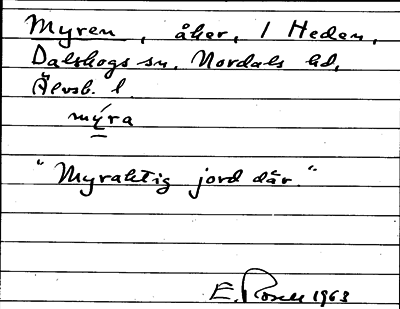 Myren, åker, 1 Heden,
Dalskogs sn, Nordals hd,
Älvsb. l.
mýra
"Myraktig jord där."
E. Rosell 1963